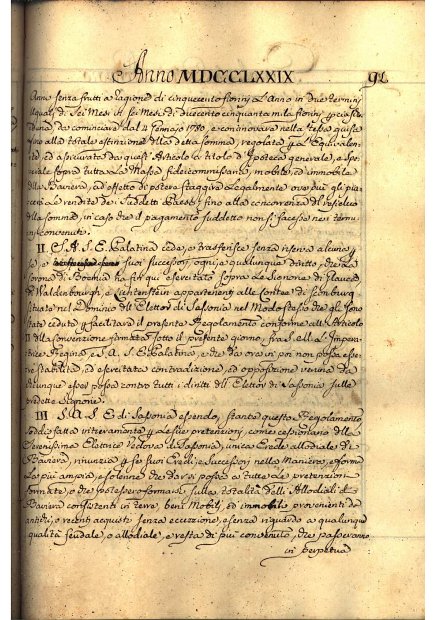 Anno MDCCLXXIX. 91
Anno senza frutti a ragione di cinquecento fiorini l'Anno in due termini
uguali, di Sei Mesi in Sei Mesi, di duecento cinquanta mila fiorini
da cominciare dal 4 Gennajo 1780, e continovare nella stessa guisa
fino alla totale estinzione della detta somma, regolata
ed assicurata da quest'Articolo a titolo d'Ipoteca generale, e spe-
ciale sopra tutta la Massa fideicommissaria, mobile, ed immobile
della Baviera, ad effetto di potere staggire legalmente ove più gli pia-
cerà le rendite de' Suddetti Paesi, fino alla concorrenza del
della somma, in caso che il pagamento suddetto non si facesse nei termi-
ni convenuti.
II. S. A. S. E. Palatina cede, e trasferisce senza riserva alcuna
se, e suoi successori, ogni, e qualunque diritto, che la
Corona di Boemia ha fin qui esercitato sopra le Signorie di Glaucha
di Waldenbourgh, e Lichtenstein appartenenti alle Contee di Schonburg
situate nel Dominio dell'Elettor di Sassonia nel Modo stesso che gli sono
state cedute facilitare il presente Regolamento conforme all'Articolo
II della Convenzione firmata sotto il presente giorno, fra S. M. L'Impera-
trice Regina, e S. A. S. E. Palatina, e che da ora in poi non possa esse-
re stabilita, ed esercitata contradizione, ed opposizione veruna da
chiunque esser possa contro tutti i diritti dell'Elettor di Sassonia sulle
predette Signorie.
III S. A. S. E. di Sassonia essendo, stante questo Regolamento
sodisfatta interamente le sue pretenzioni, come cessionario della
Serenissima Elettrice Vedova di Sassonia, unica Erede allodiale di
Baviera, rinunzia se suoi Eredi, e Successori nella Maniera, e forma
la più ampia, e solenne che dar si possa a tutte le pretenzioni
formate, o che potesse formare sulla totalità delli Allodiali di
Baviera consistenti in terre, beni Mobili, ed immobili, provenienti da
antichi, o recenti acquisti senza eccezione, e senza riguardo a qualunque
qualità feudale, o allodiale, e resta di più convenuto, che passeranno
in perpetua